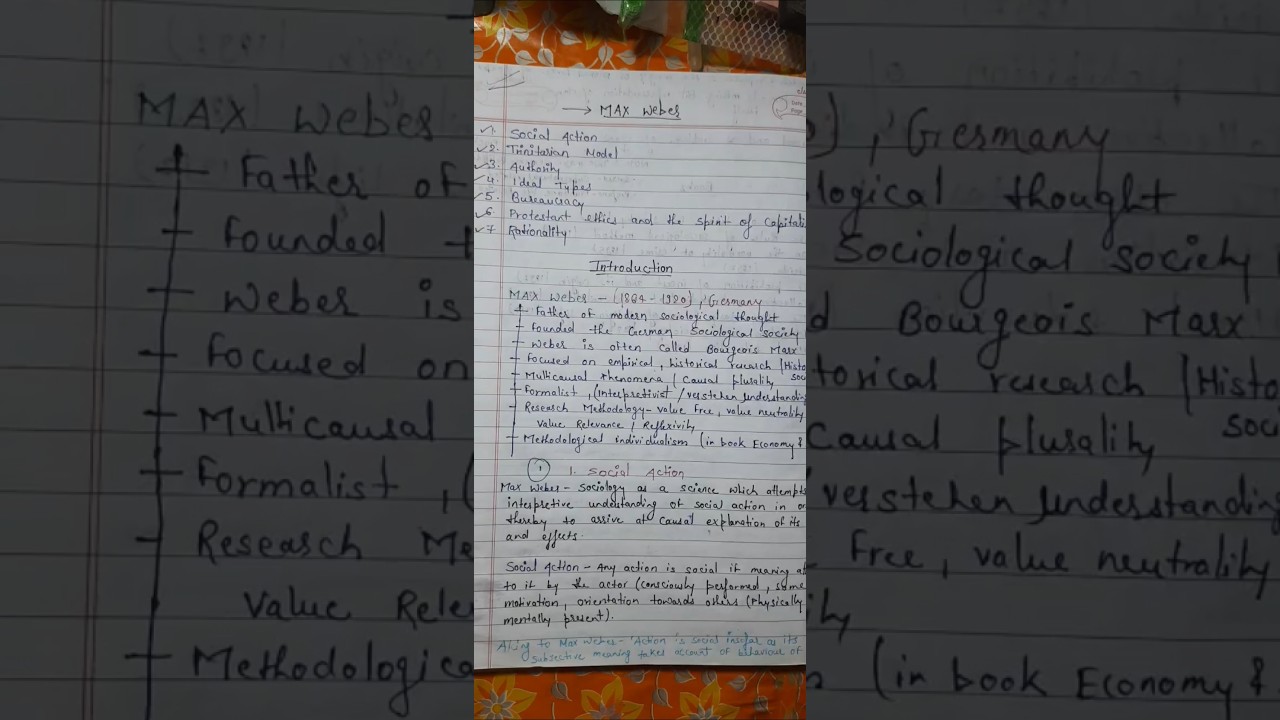 → MAX Weber
Date
Page
1. Social Action
2. Trinitarian Model
3. Authority
4. Ideal Types
5. Bureaucracy
6 Protestant ethics and the spirit of Capitali
7. Rationality
Introduction
MAX Weber - (1864 - 1920), Germany
Father of modern sociological thought
Founded the German Sociological society
Weber is often called Bourgeois Marx
Focused on empirical, historical research (Histo
Multicausal Phenomena / Causal plurality soc
Formalist, (Interpretivist / verstehen understanding
Research Methodology - value Free, value neutrality
Value Relevance / Reflexivity
Methodological individualism (in book Economy &
1 1. Social Action
Max Weber - Sociology as a science which attempts
interpretive understanding of social action in or
thereby to arrive at causal explanation of its
and effects.
Social Action - Any action is social if meaning at
to it by the actor (consciously performed, some
motivation, orientation towards others (Physically
mentally present).
A/cing to Max Weber - 'Action is social insofar as its
subjective meaning takes account of behaviour of